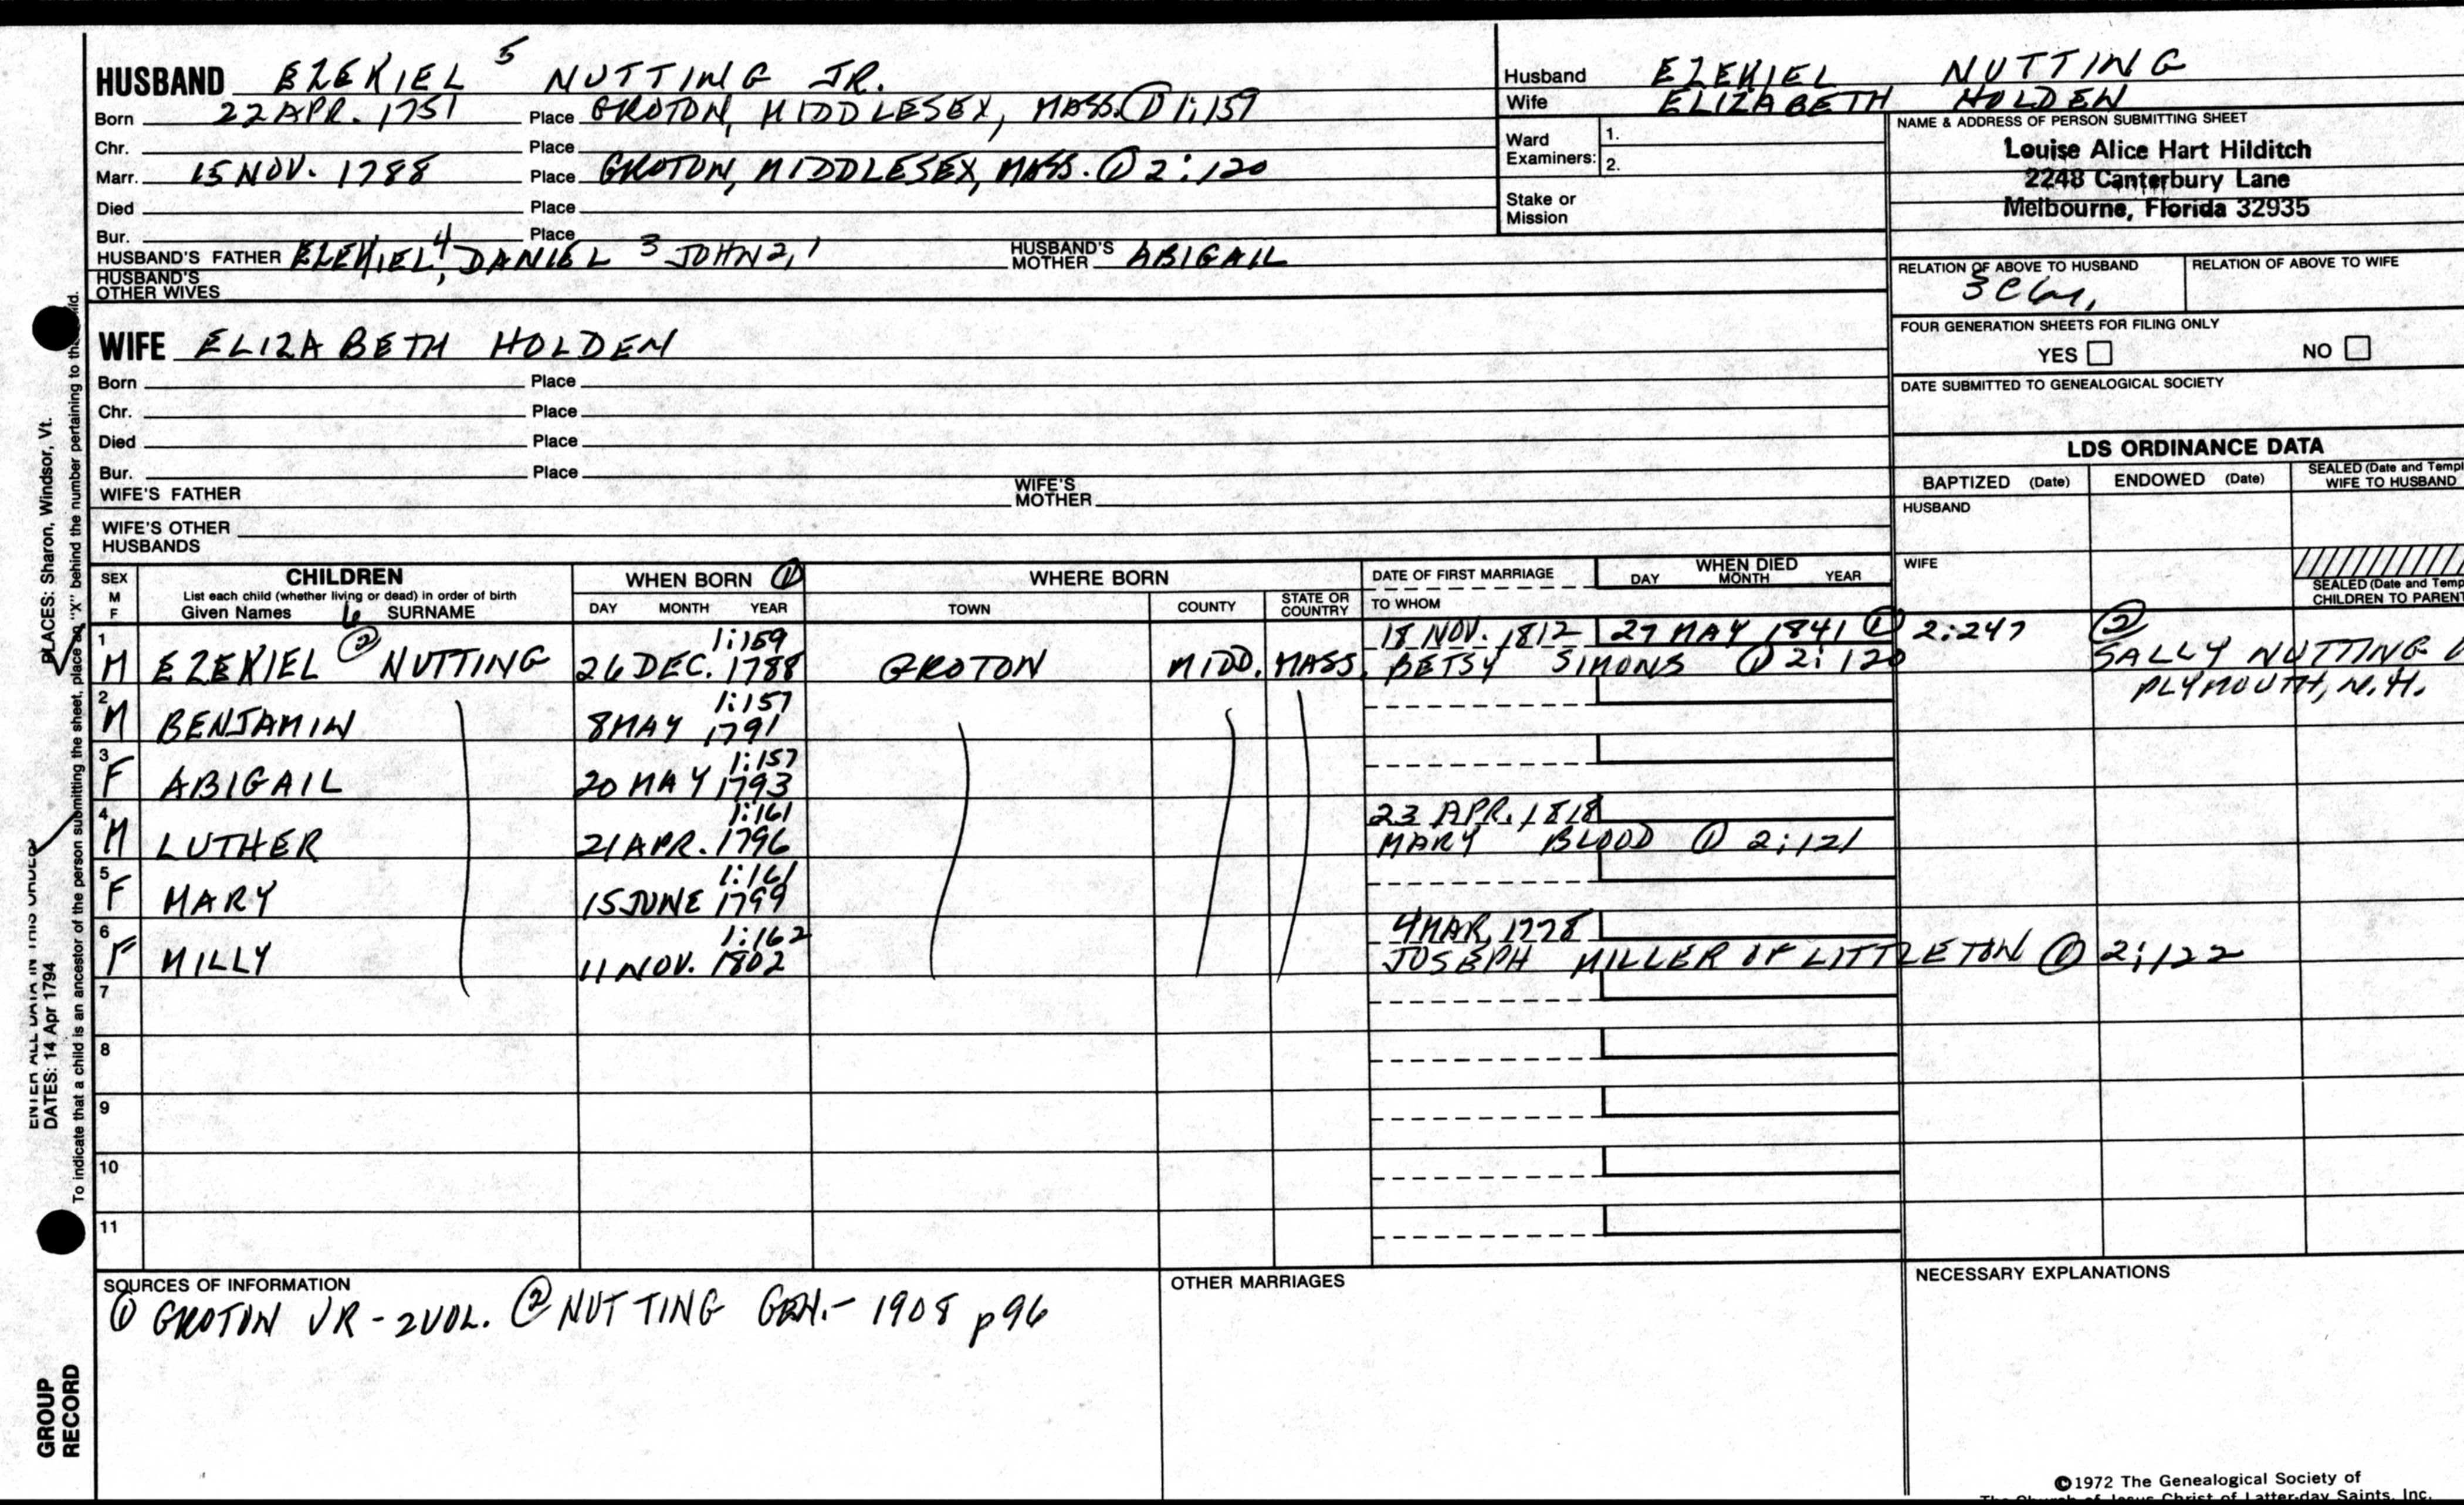 HUSBAND EZEKIEL 5 NUTTING JR.
Born 22 APR. 1751 Place GROTON, MIDDLESEX, MASS. ① 1:159
Chr. Place
Marr. 15 NOV. 1788 Place GROTON, MIDDLESEX, MASS. ① 2:120
Died Place
Bur. Place
HUSBAND'S FATHER EZEKIEL 4, DANIEL 3 JOHN 2,1 HUSBAND'S MOTHER ABIGAIL
HUSBAND'S OTHER WIVES
Husband EZEKIEL NUTTING
Wife ELIZABETH HOLDEN
Ward Examiners: 1.
2.
Stake or Mission
NAME & ADDRESS OF PERSON SUBMITTING SHEET
Louise Alice Hart Hilditch
2248 Canterbury Lane
Melbourne, Florida 32935
RELATION OF ABOVE TO HUSBAND RELATION OF ABOVE TO WIFE
3 C
FOUR GENERATION SHEETS FOR FILING ONLY
YES NO
DATE SUBMITTED TO GENEALOGICAL SOCIETY
WIFE ELIZABETH HOLDEN
Born Place
Chr. Place
Died Place
Bur. Place
WIFE'S FATHER WIFE'S MOTHER
WIFE'S OTHER HUSBANDS
LDS ORDINANCE DATA
BAPTIZED (Date) ENDOWED (Date) SEALED (Date and Templ
WIFE TO HUSBAND
HUSBAND
WIFE
SEALED (Date and Temp
CHILDREN TO PARENT
SEX M F
CHILDREN
List each child (whether living or dead) in order of birth
Given Names 6 SURNAME
WHEN BORN ①
DAY MONTH YEAR
WHERE BORN
TOWN COUNTY STATE OR COUNTRY
DATE OF FIRST MARRIAGE
TO WHOM
WHEN DIED
DAY MONTH YEAR
1 1:159 18 NOV. 1812 27 MAY 1841 ① 2:247 ②
M EZEKIEL ② NUTTING 26 DEC. 1788 GROTON MIDD. MASS. BETSY SIMONS ① 2:120 SALLY NUTTING
PLYMOUTH, N.H.
2 1:157
M BENJAMIN 8 MAY 1791
3 1:157
F ABIGAIL 20 MAY 1793
4 1:161 23 APR. 1818
M LUTHER 21 APR. 1796 MARY BLOOD ① 2:121
5 1:161
F MARY 15 JUNE 1799
6 1:162 4 MAR. 1228
F MILLY 11 NOV. 1802 JOSEPH MILLER OF LITTLETON ① 2:122
7
8
9
10
11
SOURCES OF INFORMATION
① GROTON VR - 2 VOL. ② NUTTING GEN. - 1908 p96
OTHER MARRIAGES
NECESSARY EXPLANATIONS
©1972 The Genealogical Society of
The Church of Jesus Christ of Latter-day Saints, Inc.
PLACES: Sharon, Windsor, Vt.
ENTER ALL DATA IN THIS ORDER
DATES: 14 Apr 1794
To indicate that a child is an ancestor of the person submitting the sheet, place an "X" behind the number pertaining to that child.
GROUP
RECORD